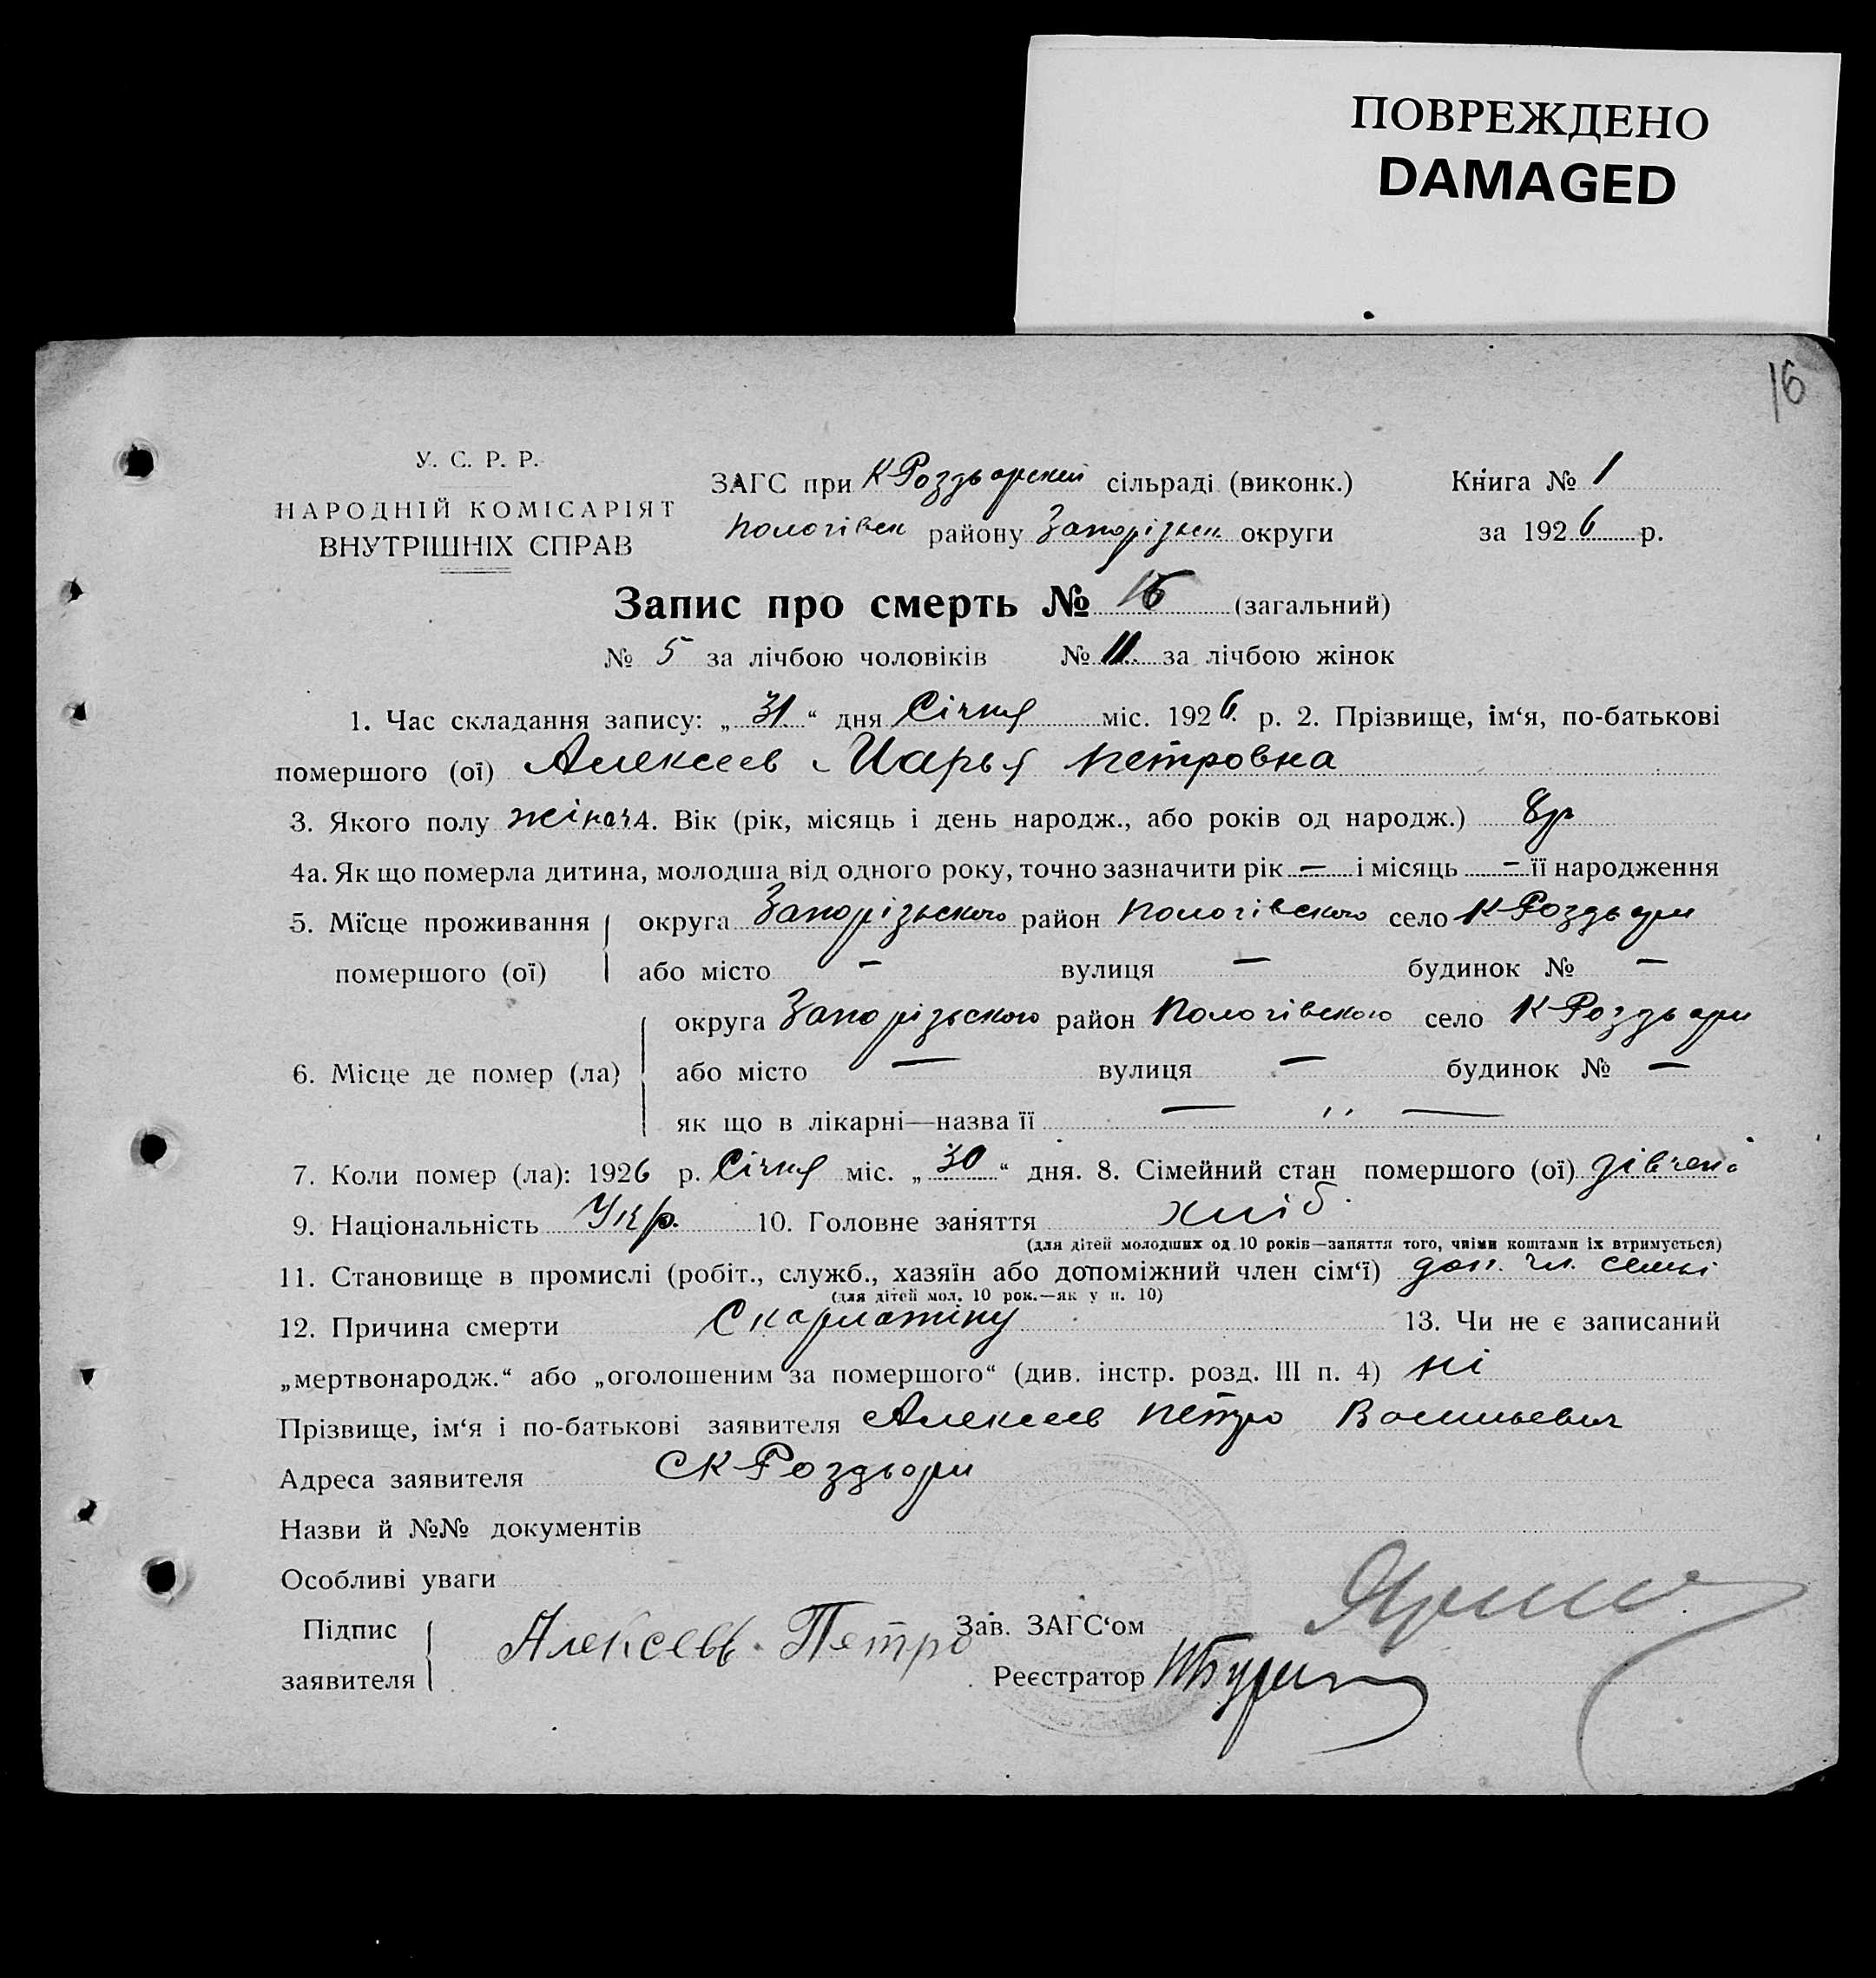 ПОВРЕЖДЕНО
DAMAGED
16
У. С. Р. Р.
НАРОДНІЙ КОМІСАРІЯТ
ВНУТРІШНІХ СПРАВ
ЗАГС при К Роздорскій сільраді (виконк.) Книга № 1
Пологівськ району Запорізьк. округи за 1926 р.
Запис про смерть № 16 (загальний)
№ 5 за лічбою чоловіків № 11 за лічбою жінок
1. Час складання запису: „31“ дня Січня міс. 1926 р. 2. Прізвище, ім‘я, по-батькові
помершого (ої) Алексеев Марья Петровна
3. Якого полу жіноч 4. Вік (рік, місяць і день народж., або років од народж.) 8 р
4а. Як що померла дитина, молодша від одного року, точно зазначити рік — і місяць — її народження
5. Місце проживання округа Запорізького район Пологівского село К-Роздори
помершого (ої) або місто — вулиця — будинок № —
округа Запорізького район Пологівского село К-Роздори
6. Місце де помер (ла) або місто — вулиця — будинок № —
як що в лікарні—назва її — ,, —
7. Коли помер (ла): 1926 р. Січня міс. „30“ дня. 8. Сімейний стан помершого (ої)
9. Національність Укр. 10. Головне заняття хліб
(для дітей молодших од 10 років—заняття того, чиїми коштами їх втримується)
11. Становище в промислі (робіт., служб., хазяїн або допоміжний член сім‘ї) доп. чл. семьі
(для дітей мол. 10 рок.—як у п. 10)
12. Причина смерти Скарлатіну 13. Чи не є записаний
„мертвонародж.“ або „оголошеним за помершого“ (див. інстр. розд. III п. 4) ні
Прізвище, ім‘я і по-батькові заявителя Алексеев Петро Васильевич
Адреса заявителя С К-Роздори
Назви й №№ документів
Особливі уваги
Підпис
заявителя Алексеевъ Петро
Зав. ЗАГС‘ом
Реєстратор